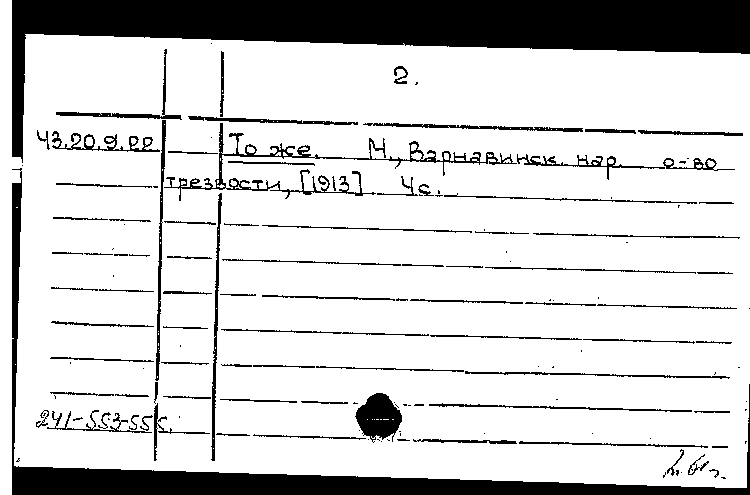 2.
43.20.9.22 То же. М., Варнавинск. нар. о-во
трезвости, [1913] 4с.
241-553-55с.